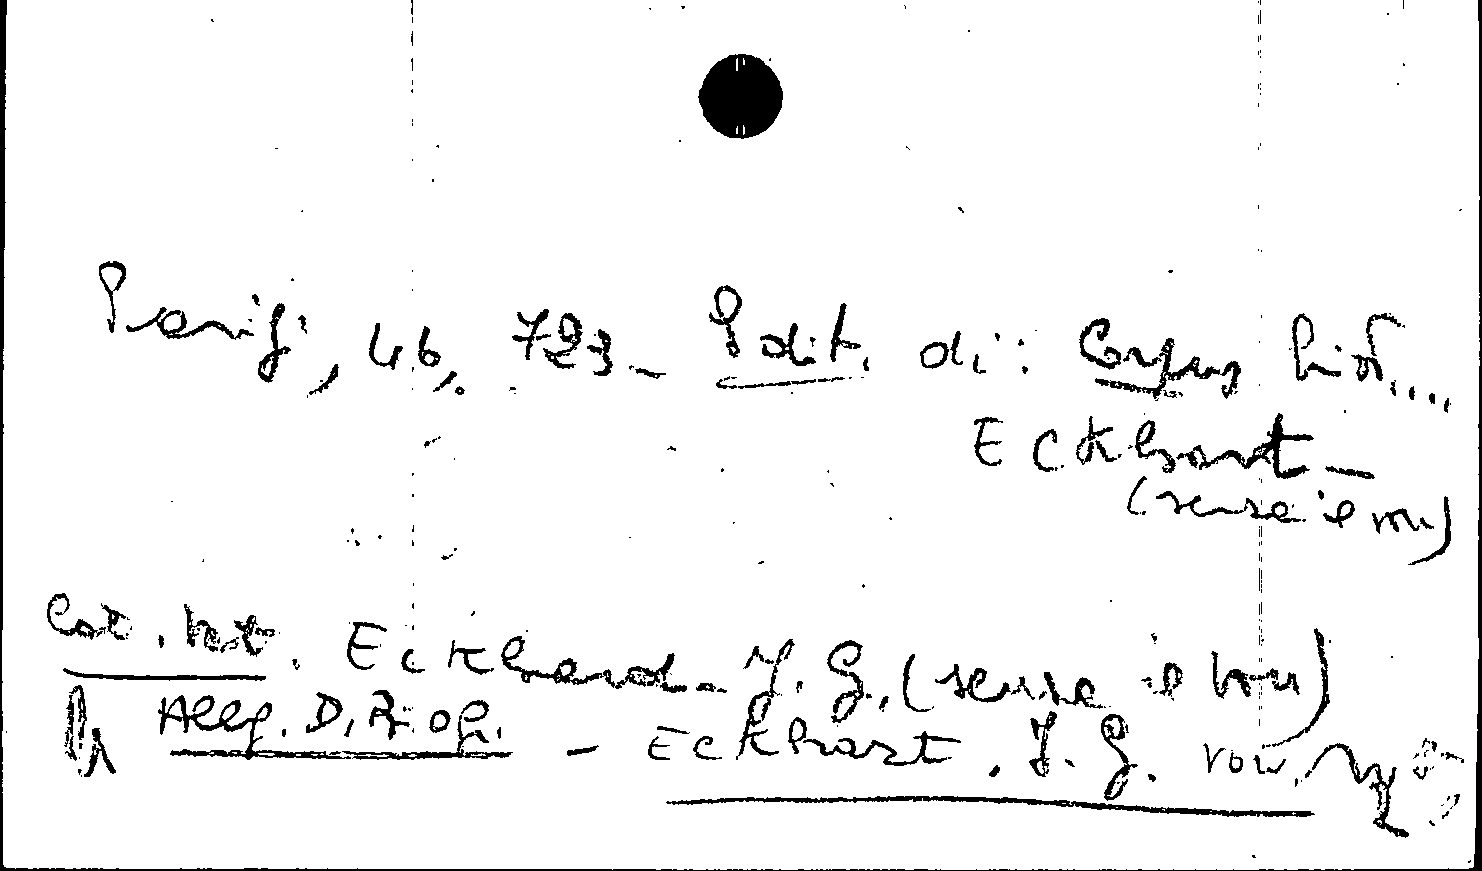 Parigi, 46, 723 - Edit. di: Corpus hist....
Eckhart -
(senza il von)
Cat. . Eckhard - J. G. (senza il von)
Allg. D. Biogr. - Eckhart, J. G. von